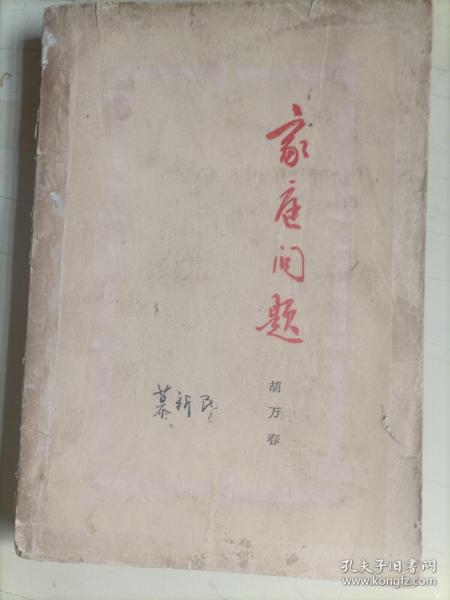 家庭问题
胡万春
慕新民
孔夫子旧书网
www.kongfz.com